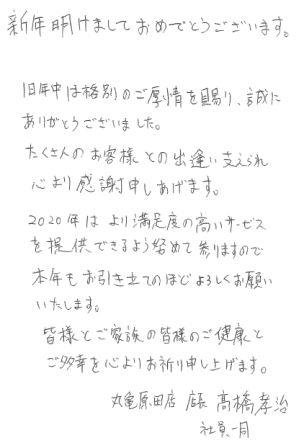 新年明けましておめでとうございます。
旧年中は格別のご厚情を賜り、誠に
ありがとうございました。
たくさんのお客様との出逢い支えられ
心より感謝申しあげます。
2020年はより満足度の高いサービス
を提供できるよう努めて参りますので
本年もお引き立てのほどよろしくお願い
いたします。
皆様とご家族の皆様のご健康と
ご多幸を心よりお祈り申し上げます。
丸亀原田店 店長 高橋孝治
社員一同